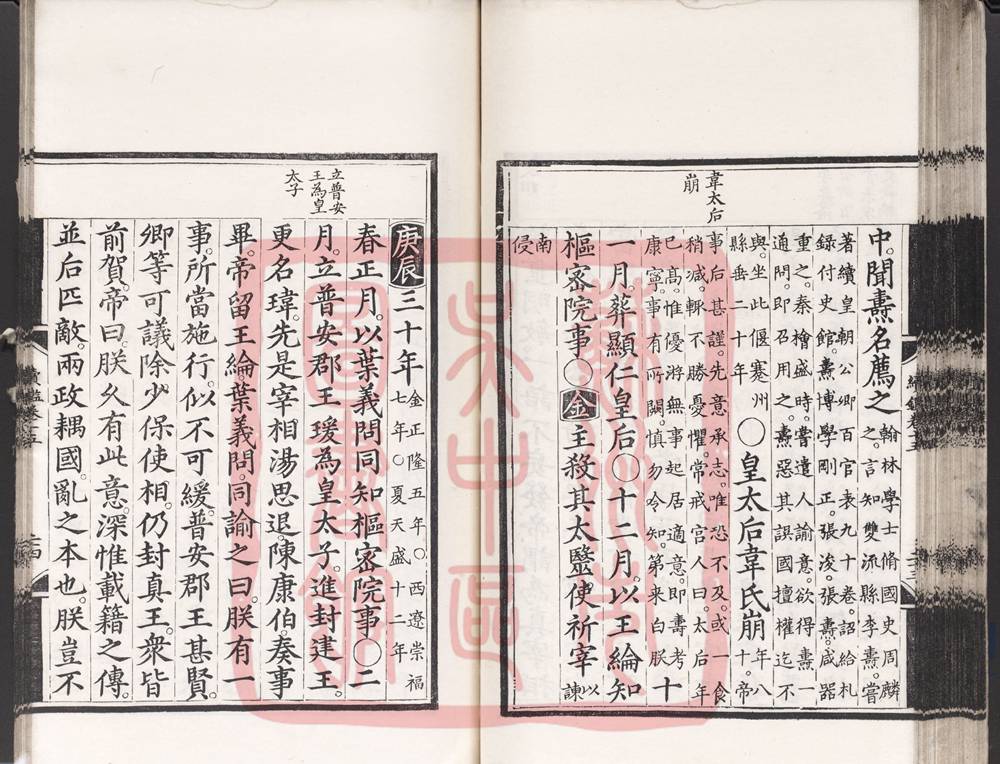 韋太后
崩
中。聞燾名薦之。翰林學士脩國史周麟
之。言知雙流縣李燾。嘗
著續皇朝公卿百官表九十卷。詔給札
録付史館。燾博學剛正。張浚。張燾。咸器
重之。秦檜盛時。嘗遣人諭意。欲得燾一
通問。即召用之。燾惡其誤國擅權。迄不
與。坐此偃蹇州
縣垂二十年○皇太后韋氏崩年八
十。帝
事后甚謹。先意承志。唯恐不及。或一食
稍減。輒不勝憂懼。常戒宫人曰。太后年
已高。惟優游無事。起居適意。即壽考
康寧。事有所闕。慎勿令知。第来白朕十
一月。葬顯仁皇后。○十二月。以王綸知
樞密院事。○金主殺其太毉使祈宰以
諫
南
侵
立普安
王為皇
太子
庚辰三十年金正隆五年。○西遼崇福
七年。○夏天盛十二年
春正月。以葉義問同知樞密院事。○二
月。立普安郡王瑗為皇太子。進封建王。
更名瑋。先是宰相湯思退。陳康伯。奏事
畢。帝留王綸葉義問。同諭之曰。朕有一
事。所當施行。似不可緩。普安郡王甚賢。
卿等可議除少保使相。仍封真王。衆皆
前賀。帝曰。朕久有此意。深惟載籍之傳。
並后匹敵。兩政耦國。亂之本也。朕豈不